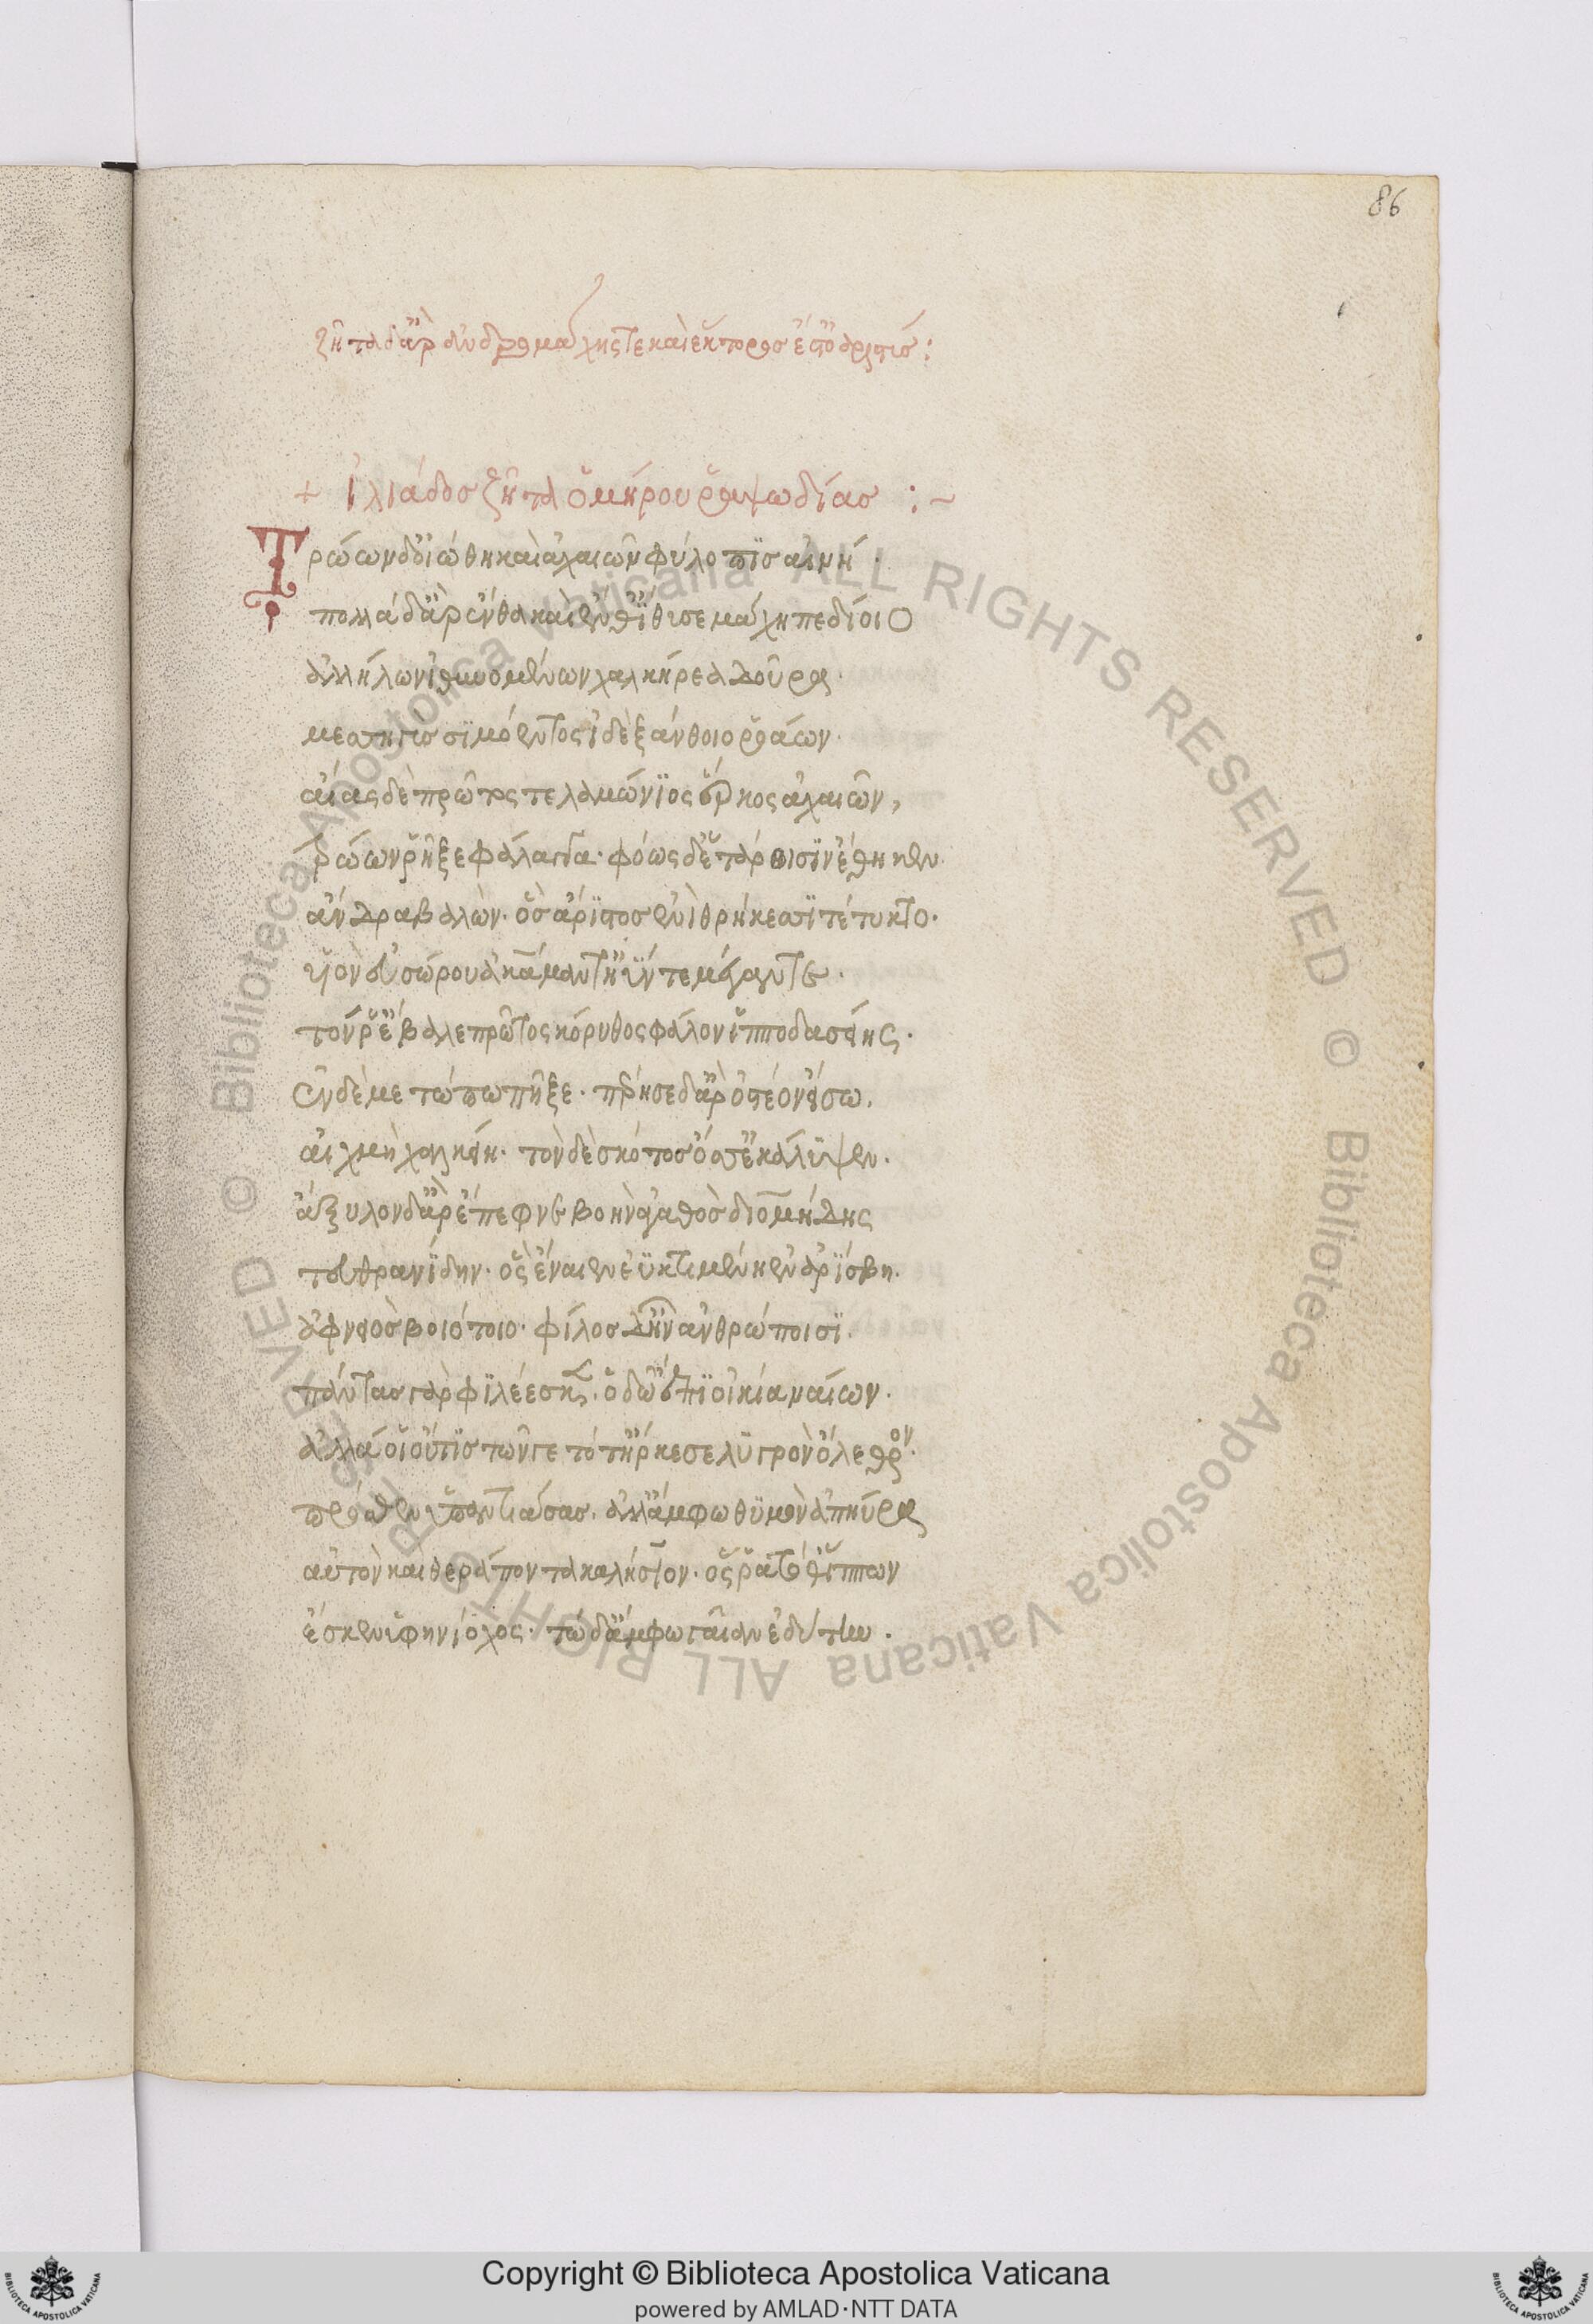 86
ζῆτα δ' ἄρ' ἀνδρομάχης τε καὶ ἕκτορος ἔστ' ὀαριστύς :
+ ἰλιάδος ζῆτα ὁμήρου ῥαψωδίας : ~
Τρώων δ' οἰώθη καὶ ἀχαιῶν φύλοπϊς αἰνή ·
πολλὰ δ' ἂρ ἔνθα καὶ ἔνθ' ἴθυσε μάχη πεδίοιο
ἀλλήλων ἰθυνομένων χαλκήρεα δοῦρα ·
μεσηγὺς σϊμόεντος ἰδὲ ξάνθοιο ῥοάων ·
αἴας δὲ πρῶτος τελαμώνϊος ἕρκος ἀχαιῶν,
τρώων ῥῆξε φάλαγγα · φόως δ' ἑτάροισϊν ἔθηκεν
ἄνδρα βαλὼν · ὃς ἄρϊστος ἐνὶ θρήκεσσϊ τέτυκτο ·
υἱὸν ἐϋσσώρου ἀκάμαντ' ἠΰν τε μέγαν τε ·
τόν ῥ' ἔβαλε πρῶτος κόρυθος φάλον ἱπποδασείης ·
ἐν δὲ μετώπω πῆξε · πέρησε δ' ἂρ ὀστέον εἴσω.
αἰχμὴ χαλκείη · τὸν δὲ σκότος ὄσσ' ἐκάλϋψεν ·
ἄξυλον δ' ἂρ ἔπεφνε βοὴν ἀγαθὸς διομήδης
τευθρανΐδην · ὃς ἔναιεν ἐϋκτιμένη ἐν ἀρΐσβη ·
ἀφνειὸς βιότοιο · φίλος δ' ἦν ἀνθρώποισϊ.
πάντας γὰρ φϊλέεσκεν · ὁδῶ ἔπϊ οἰκία ναίων ·
ἀλλά οἱ οὔτϊς τῶν γε τότ' ἤρκεσε λϋγρὸν ὄλεθρον ·
πρόσθεν ὑπαντιάσας · ἀλλ' ἄμφω θϋμὸν ἀπηύρα
αὐτὸν καὶ θεράποντα καλήσιον · ὅς ῥα τόθ' ἵππων
ἔσκεν ὑφηνίοχος · τὼ δ' ἄμφω γαῖαν ἐδύτην ·
Copyright © Biblioteca Apostolica Vaticana
powered by AMLAD·NTT DATA
© Biblioteca Apostolica Vaticana ALL RIGHTS RESERVED © Biblioteca Apostolica Vaticana ALL RIGHTS RESERVED